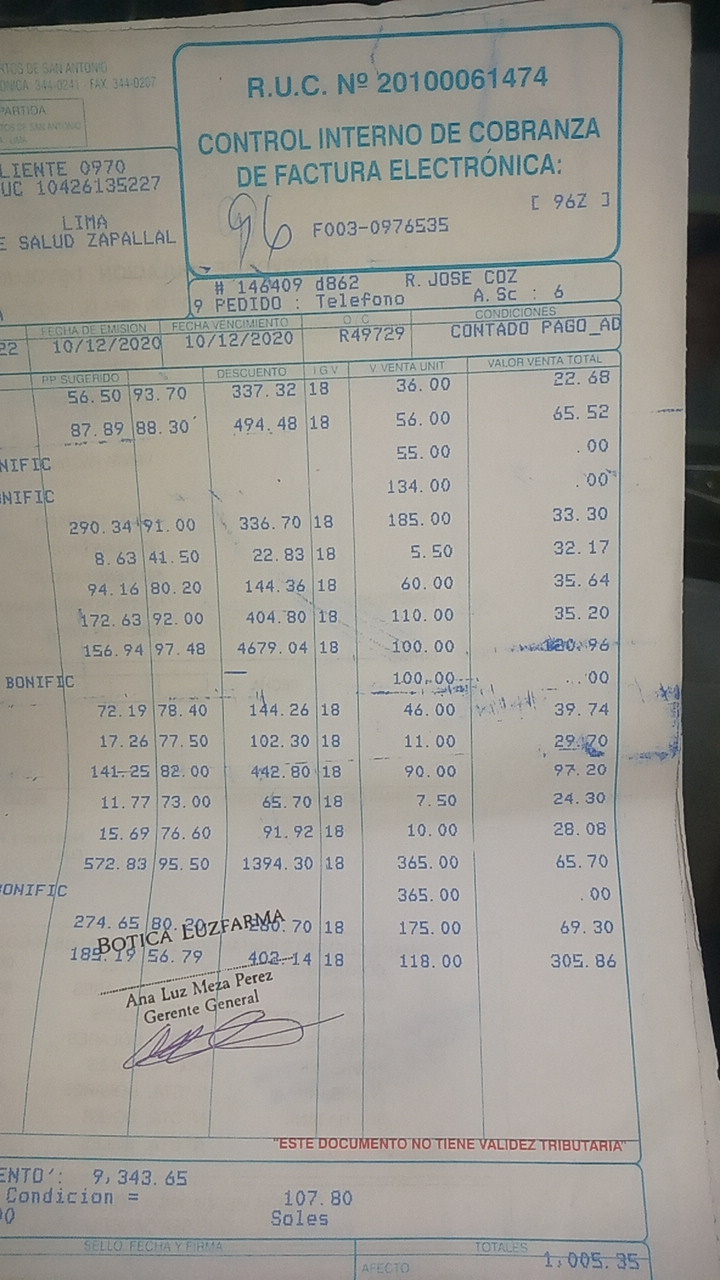 RTOS DE SAN ANTONIO
FAX. 344-0207
R.U.C. Nº 20100061474
PARTIDA
CONTROL INTERNO DE COBRANZA
DE FACTURA ELECTRÓNICA:
LIENTE 0970
UC 10426135227
[ 96Z ]
96 F003-0976535
LIMA
E SALUD ZAPALLAL
# 146409 d862 R. JOSE COZ
9 PEDIDO : Telefono A. Sc : 6
FECHA DE EMISION FECHA VENCIMIENTO O / C CONDICIONES
22 10/12/2020 10/12/2020 R49729 CONTADO PAGO_AD
PP SUGERIDO % DESCUENTO I G V V VENTA UNIT VALOR VENTA TOTAL
56.50 93.70 337.32 18 36.00 22.68
87.89 88.30 494.48 18 56.00 65.52
NIFIC 55.00 .00
ONIFIC 134.00 .00
290.34 91.00 336.70 18 185.00 33.30
8.63 41.50 22.83 18 5.50 32.17
94.16 80.20 144.36 18 60.00 35.64
172.63 92.00 404.80 18 110.00 35.20
156.94 97.48 4679.04 18 100.00 120.96
BONIFIC 100.00 .00
72.19 78.40 144.26 18 46.00 39.74
17.26 77.50 102.30 18 11.00 29.70
141.25 82.00 442.80 18 90.00 97.20
11.77 73.00 65.70 18 7.50 24.30
15.69 76.60 91.92 18 10.00 28.08
572.83 95.50 1394.30 18 365.00 65.70
BONIFIC 365.00 .00
274.65 80.20 280.70 18 175.00 69.30
185.19 56.79 402.14 18 118.00 305.86
BOTICA LUZFARMA
Ana Luz Meza Perez
Gerente General
"ESTE DOCUMENTO NO TIENE VALIDEZ TRIBUTARIA"
ENTO': 9,343.65
Condicion = 107.80
0 Soles
SELLO, FECHA Y FIRMA TOTALES
AFECTO 1,005.35